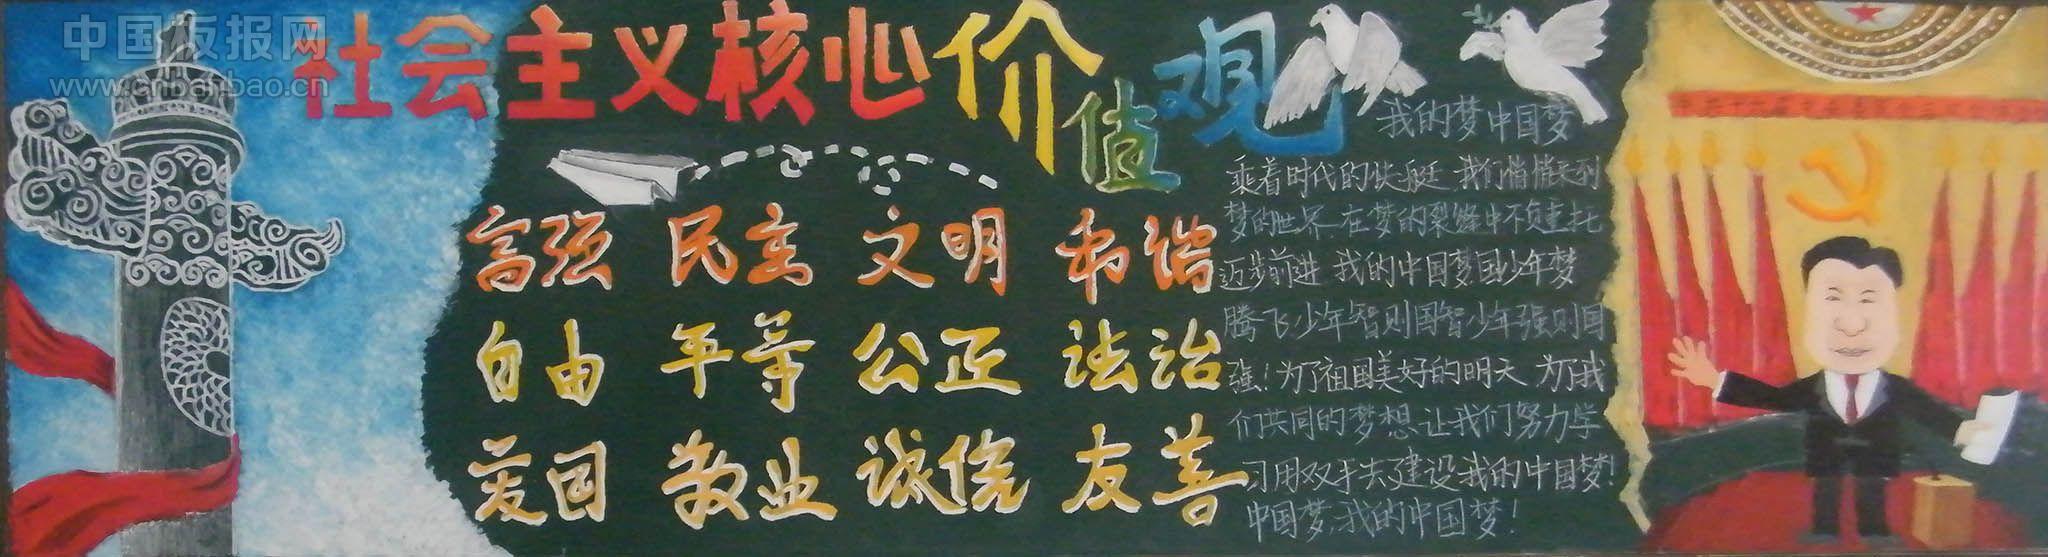 中国板报网
www.cnbanbao.cn
社会主义核心价值观
富强 民主 文明 和谐
自由 平等 公正 法治
爱国 敬业 诚信 友善
我的梦中国梦
乘着时代的快艇 我们悄悄来到
梦的世界 在梦的裂缝中不负重托
迈步前进 我的中国梦国少年梦
腾飞少年智则国智少年强则国
强！为了祖国美好的明天 为了我
们共同的梦想 让我们努力学
习用双手去建设我的中国梦！
中国梦，我的中国梦！